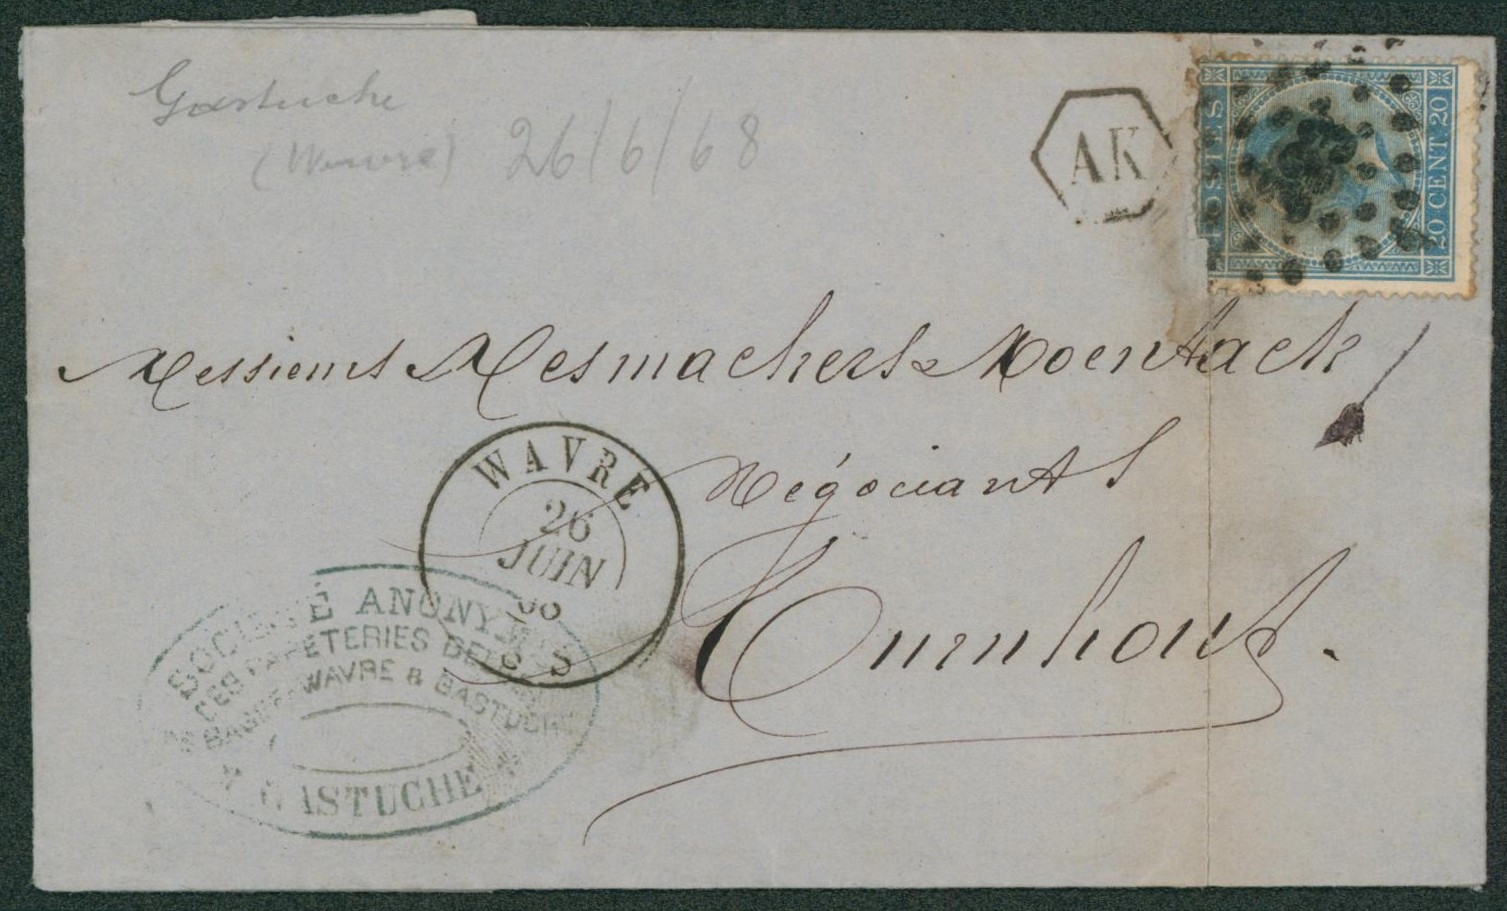 Gastuche
(Wavre) 26/6/68
AK
POSTES
20 CENT. 20
Messieurs Mesmaekers & Moentack
Négociants
Turnhout.
WAVRE
26
JUIN
68
SOCIÉTÉ ANONYME
DES PAPETERIES BELGES
WAVRE & GASTUCHE
GASTUCHE